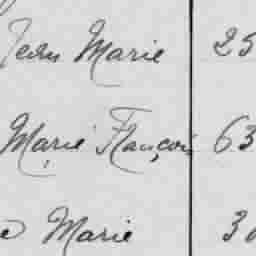 Jean Marie 25
Marie François 63
Marie 30